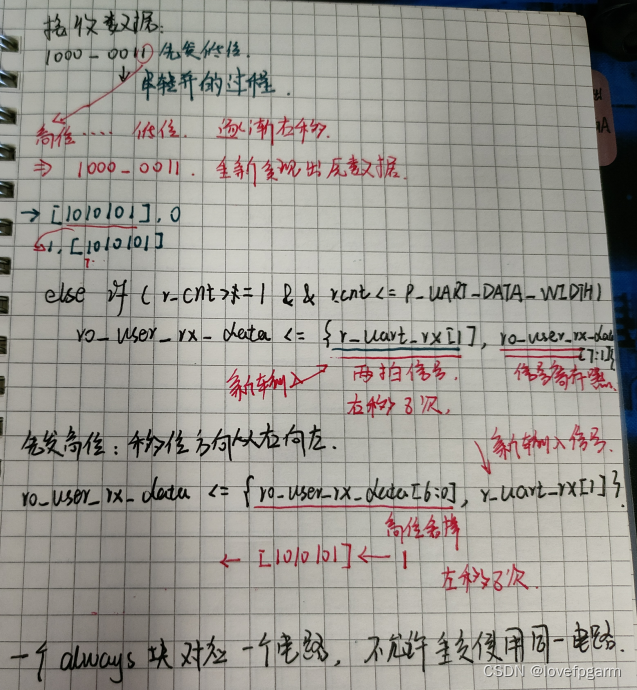 接收数据:
1000-0011 先发低位.
串转并的过程.
高位..... 低位. 逐渐右移.
⇒ 1000-0011. 重新实现出原数据.
→ [1010101], 0
1, [1010101]
else if ( r_cnt >= 1 && r_cnt <= P_UART_DATA_WIDTH)
ro_user_rx_data <= { r_uart_rx[1], ro_user_rx_data
[7:1]}
新输入 两拍信号. 信号寄存器.
右移8次,
先发高位: 移位方向从右向左.
新输入信号.
ro_user_rx_data <= { ro_user_rx_data[6:0], r_uart_rx[1] }.
高位舍掉
← [1010101] ← 1
左移8次.
一个always块对应一个电路, 不允许重复使用同一电路.
CSDN @lovefpgarm